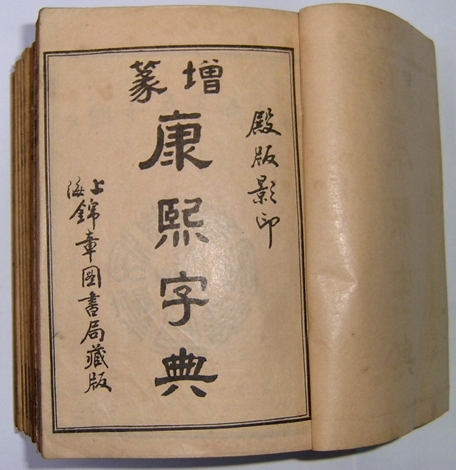 增篆
康熙字典
殿版影印
上海錦章圖書局藏版